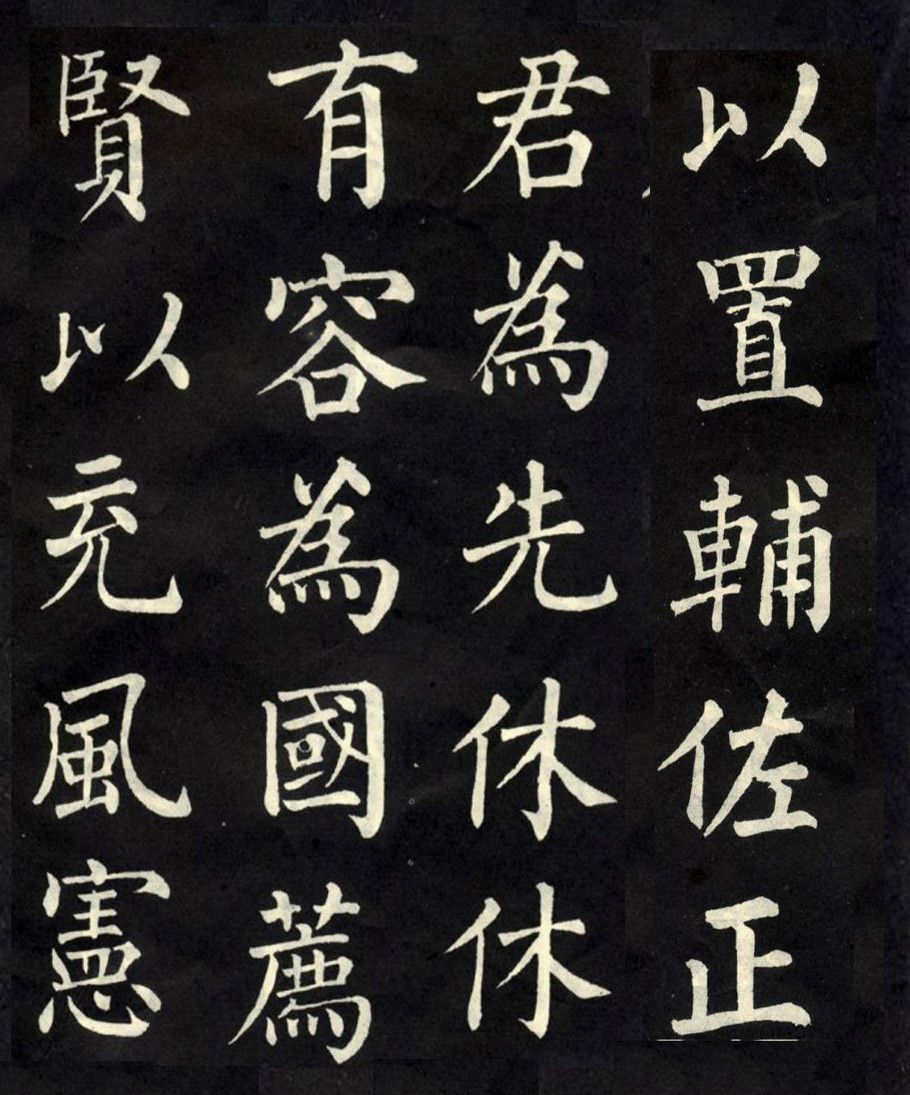 以置輔佐正
君為先休休
有容為國薦
賢以充風憲